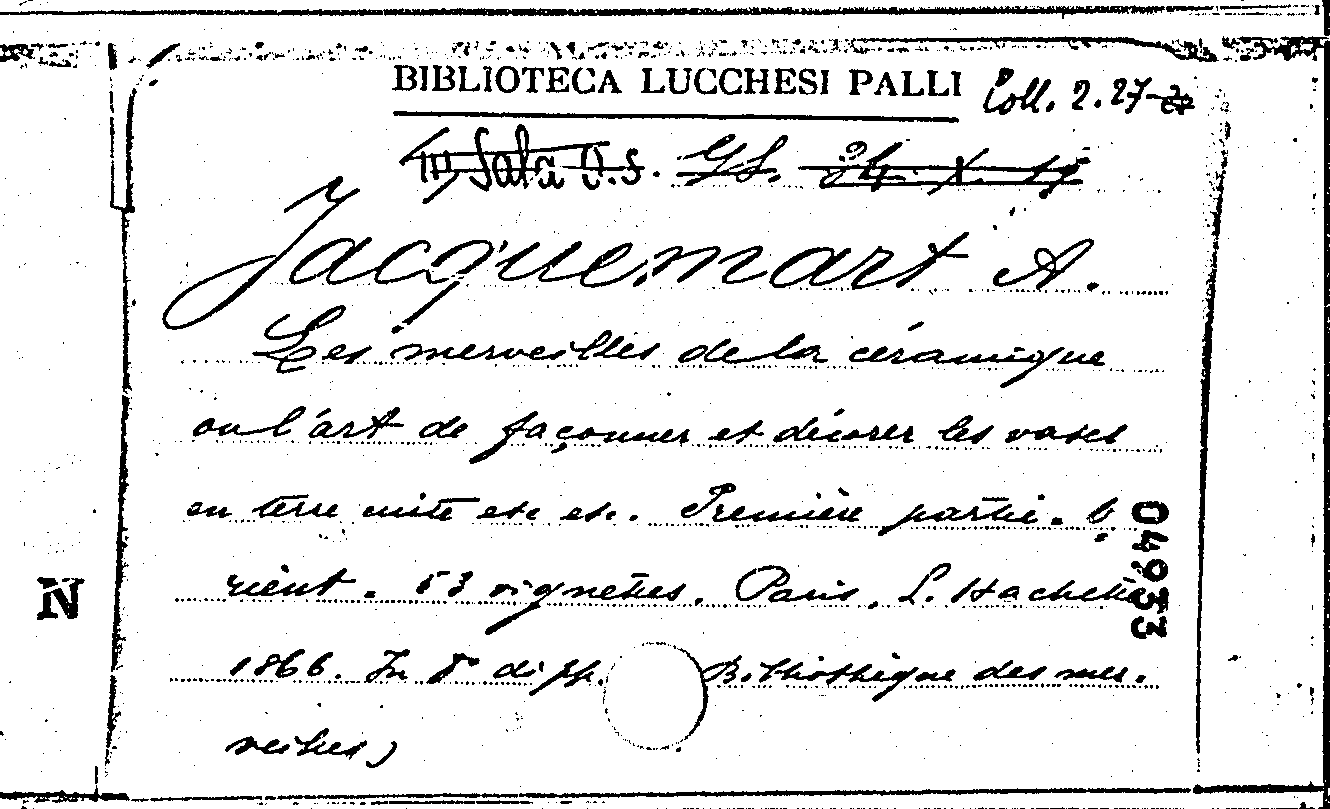 BIBLIOTECA LUCCHESI PALLI Coll. 2.27
Sala
Jacquemart A.
Les merveilles de la céramique
ou l'art de façonner et décorer les vases
en terre cuite etc etc. Première partie. O
rient. 53 vignettes. Paris, L. Hachette
1866. In 8° di pp. Bibliothèque des mer.
veilles)
04933
N